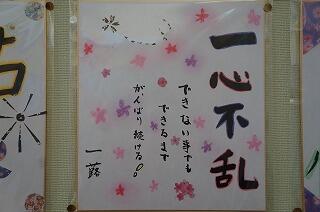 一心不乱
できない事でも
できるまで
がんばり続ける。
一路